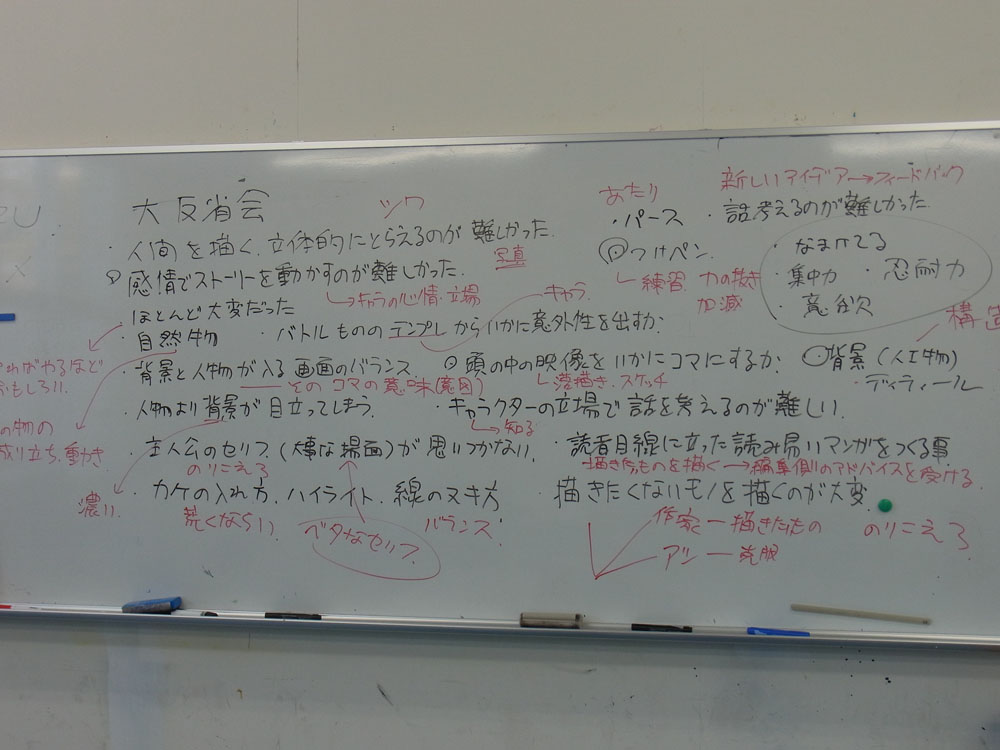 大反省会
シワ
あたり
新しいアイデア→フィードバック
・人間を描く、立体的にとらえるのが難しかった。
写真
・パース
・話考えるのが難しかった
感情でストーリーを動かすのが難しかった.
→キャラの心情・立場
つけペン.
練習 力の抜き
加減
・なまけてる
・集中力
・忍耐力
・意欲
・ほとんど大変だった
・自然物
キャラ.
バトルもののテンプレからいかに意外性を出すか.
構造
やればやるほど
おもしろい.
・背景と人物が入る画面のバランス.
そのコマの意味(意図)
頭の中の映像をいかにコマにするか.
落描き.スケッチ
背景(人工物)
・ディティール
・人物より背景が目立ってしまう.
・キャラクターの立場で話を考えるのが難しい.
→知る
の物の
成り立ち、動き
・主人公のセリフ.(大事な場面)が思いつかない.
のりこえろ
・読者目線に立った読み易いマンガをつくる事
描きたものを描く→編集側のアドバイスを受ける.
濃い.
・カゲの入れ方.ハイライト.線のヌキ方
荒くならい.
ベタなセリフ.
バランス
・描きたくないモノを描くのが大変.
作家ー描きたもの
のりこえろ
アシー克服